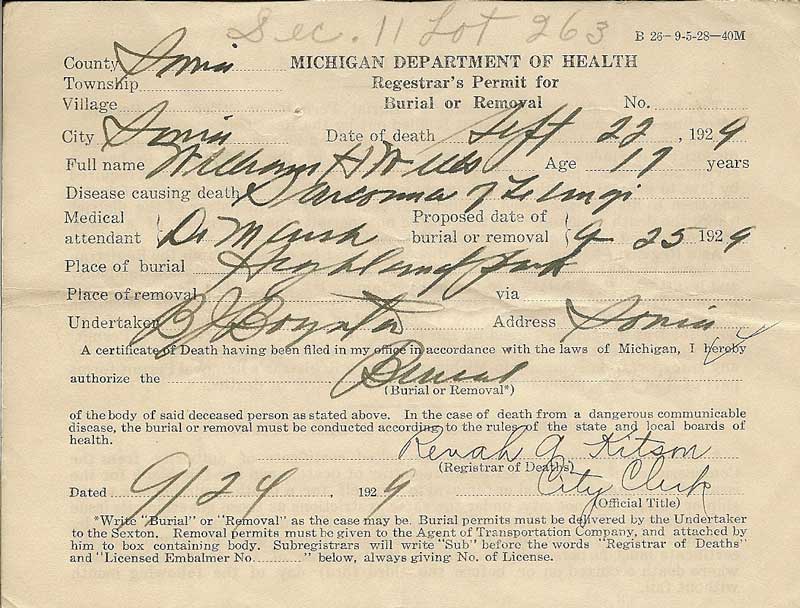 Sec. 11 Lot 263
B 26-9-5-28-40M
County Ionia MICHIGAN DEPARTMENT OF HEALTH
Township Regestrar's Permit for
Village Burial or Removal No.
City Ionia Date of death Sept 22, 1929
Full name William H Wills Age 17 years
Disease causing death Sarcoma of
Medical attendant Dr Marsh Proposed date of burial or removal 9 25 1929
Place of burial Highland Park
Place of removal via
Undertaker B J Boynton Address Ionia
A certificate of Death having been filed in my office in accordance with the laws of Michigan, I hereby
authorize the Burial
(Burial or Removal*)
of the body of said deceased person as stated above. In the case of death from a dangerous communicable
disease, the burial or removal must be conducted according to the rules of the state and local boards of
health.
Revah G Kitson
(Registrar of Deaths)
City Clerk
Dated 9/24, 1929
(Official Title)
*Write "Burial" or "Removal" as the case may be. Burial permits must be delivered by the Undertaker
to the Sexton. Removal permits must be given to the Agent of Transportation Company, and attached by
him to box containing body. Subregistrars will write "Sub" before the words "Registrar of Deaths"
and "Licensed Embalmer No. " below, always giving No. of License.